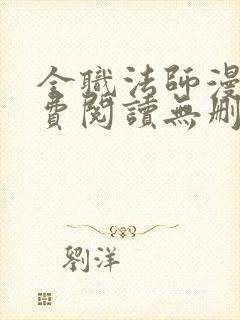 全職法師漫
費閱讀無刪
劉洋